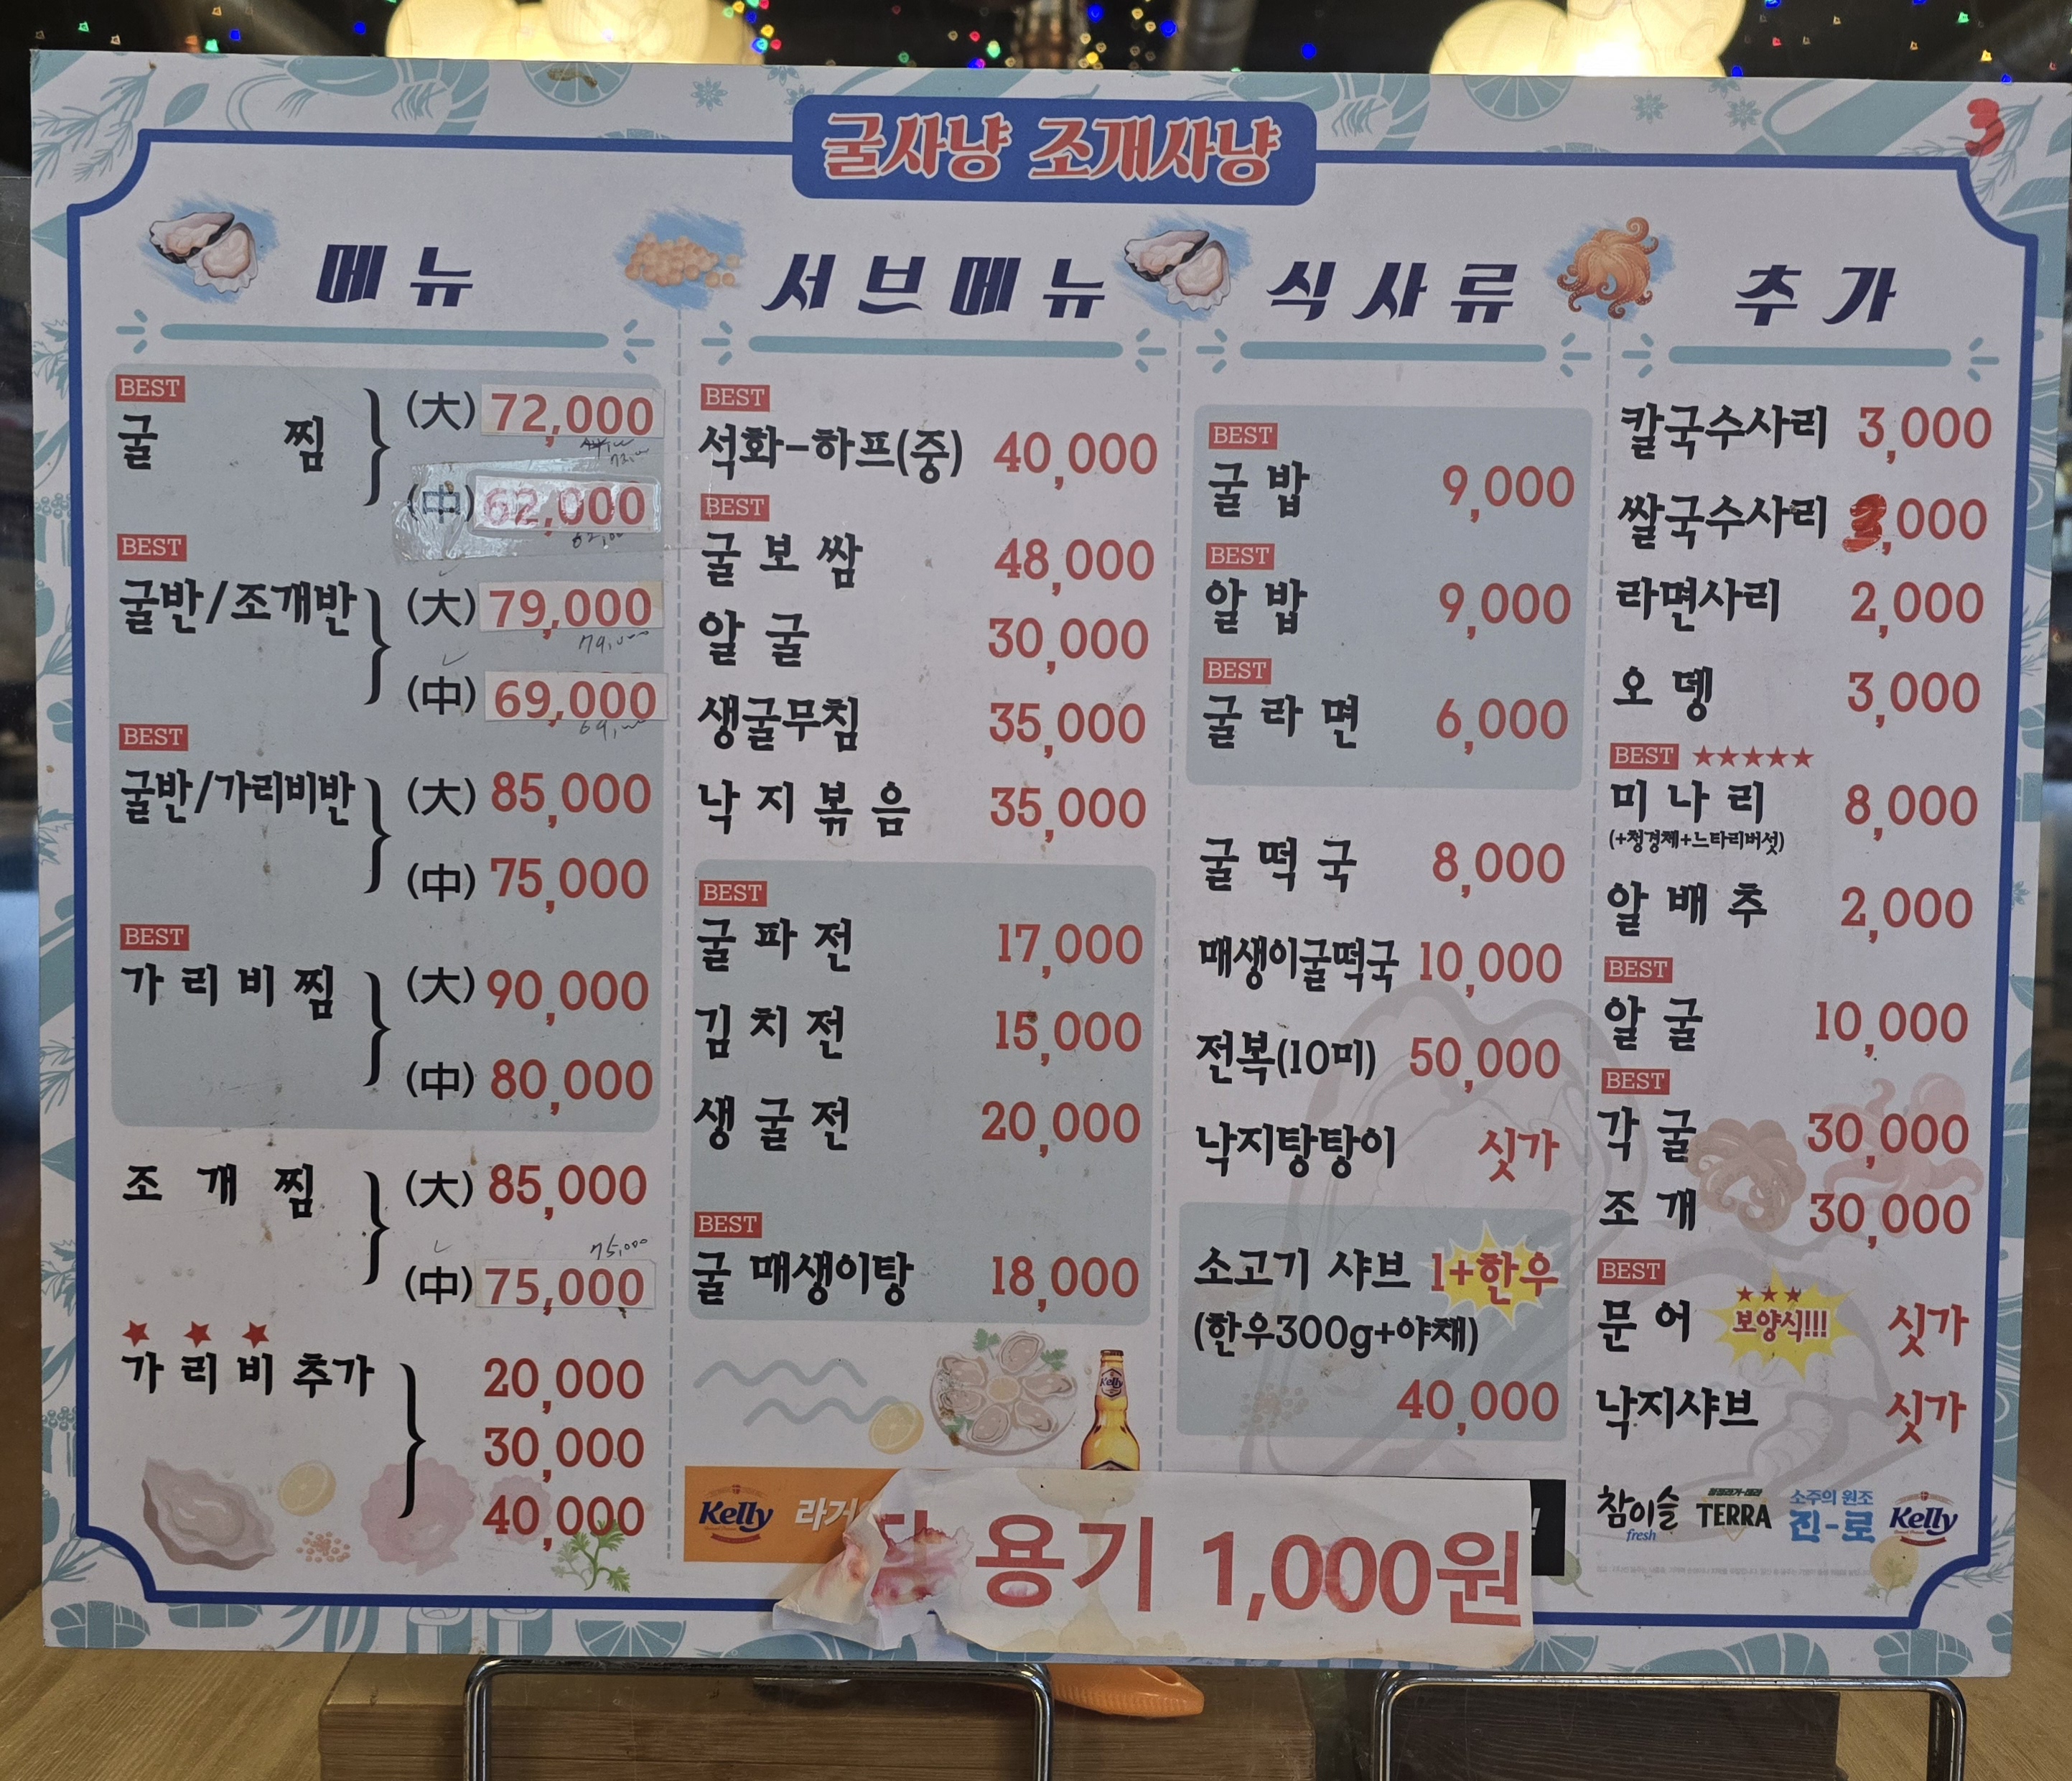 굴사냥 조개사냥
3
메뉴
BEST
굴찜 (大) 72,000
72,000
(中) 62,000
62,000
BEST
굴반/조개반 (大) 79,000
79,000
(中) 69,000
69,000
BEST
굴반/가리비반 (大) 85,000
(中) 75,000
BEST
가리비찜 (大) 90,000
(中) 80,000
조개찜 (大) 85,000
75,000
(中) 75,000
가리비추가 20,000
30,000
40,000
서브메뉴
BEST
석화-하프(중) 40,000
BEST
굴보쌈 48,000
알굴 30,000
생굴무침 35,000
낙지볶음 35,000
BEST
굴파전 17,000
김치전 15,000
생굴전 20,000
BEST
굴 매생이탕 18,000
Kelly
Kelly 라거
용기 1,000원
식사류
BEST
굴밥 9,000
BEST
알밥 9,000
BEST
굴라면 6,000
굴떡국 8,000
매생이굴떡국 10,000
전복(10미) 50,000
낙지탕탕이 싯가
소고기 샤브 1+한우
(한우300g+야채)
40,000
추가
칼국수사리 3,000
쌀국수사리 3,000
라면사리 2,000
오뎅 3,000
BEST ★★★★★
미나리 8,000
(+청경채+느타리버섯)
알배추 2,000
BEST
알굴 10,000
BEST
각굴 30,000
조개 30,000
BEST
문어 보양식!!! 싯가
낙지샤브 싯가
참이슬 fresh
TERRA
소주의 원조
진-로
Kelly